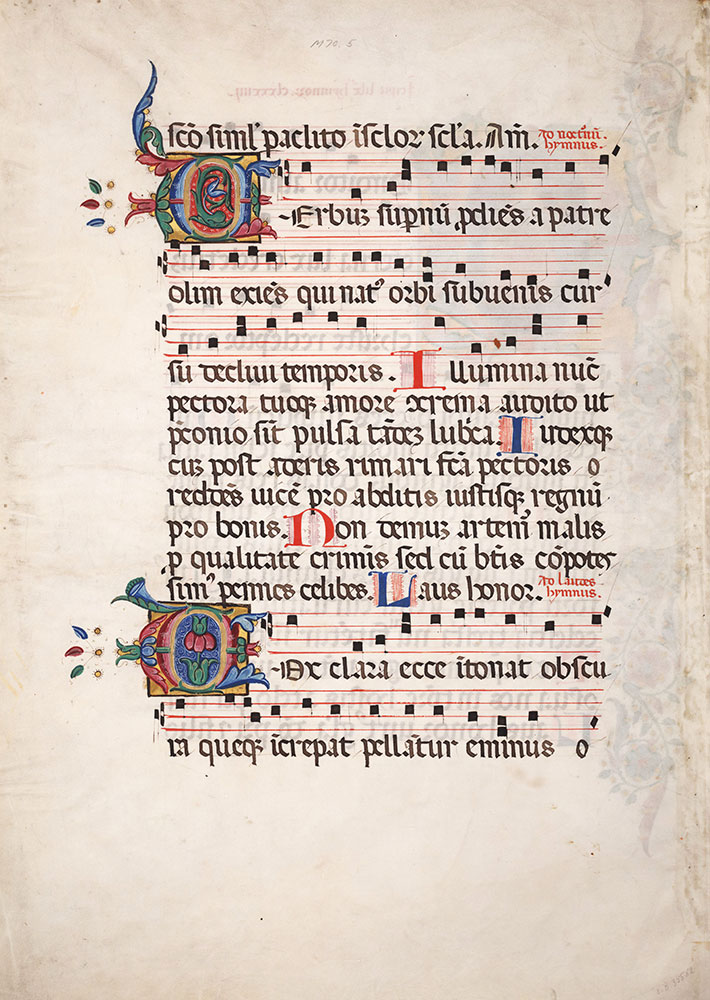 M70.5
sc̄o siml' paclito ī sc̄lor̄ sc̄la. Am̄. Ad noctur̄
hymnus.
VErbuȝ sup̄nū p̱diēs a patre
olim exiēs qui nat⁹ orbi subuenis cur
su decliui temporis. Illumina nūc
pectora tuoqȝ amore cōcrema audito ut
p̄conio sīt pulsa tādeȝ lubrica. Iudexqȝ
cuȝ post aderis rimari fc̄a pectoris
reddēs uicē pro abditis iustisqȝ regnū
pro bonis. Non demuȝ artemur malis
p̱ qualitate crimīs sed cū btīs cōpotes
sim⁹ pennes celibes. Laus honor. Ad laudes
hymnus.
VOx clara ecce ītonat obscu
ra queqȝ īcrepat pellātur eminus o